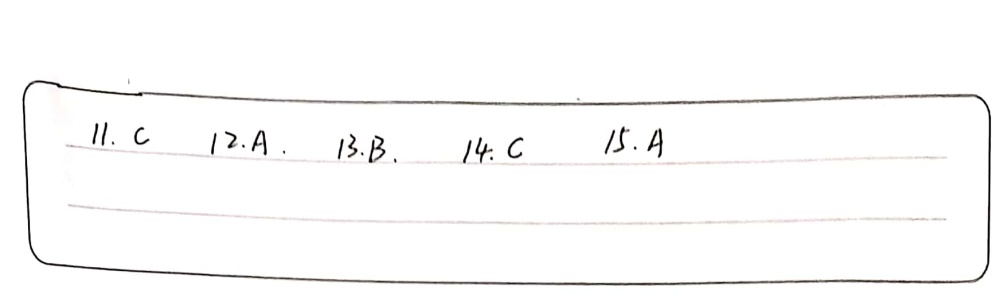 11. C 12. A. 13. B. 14. C 15. A